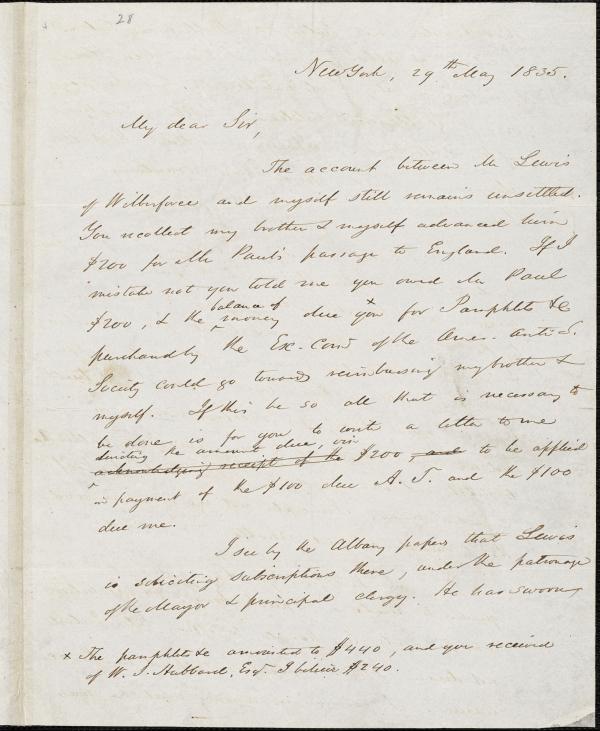 28
New York, 29th May 1835.
My dear Sir,
The account between Mr Lewis
of Wilberforce and myself still remains unsettled.
You recollect my brother & myself advanced him
$200 for Mr Paul's passage to England. If I
mistake not you told me you owed Mr Paul
balance of
$200, & the money due you x for Pamphlets &c
purchased by the Ex. Com. of the Amer. Anti-S.
Society could go towards reimbursing my brother &
myself. If this be so all that is necessary to
be done is for you to write a letter to me
directing the amount due, viz
acknowledging receipt of the $200 and to be applied
in payment of the $100 due A. T. and the $100
due me.
I see by the Albany papers that Lewis
is soliciting subscriptions there, under the patronage
of the Mayor & principal clergy. He has sworn
x The pamphlets &c amounted to $440, and you received
of W. S. Hubbard, Esq. I believe $240.